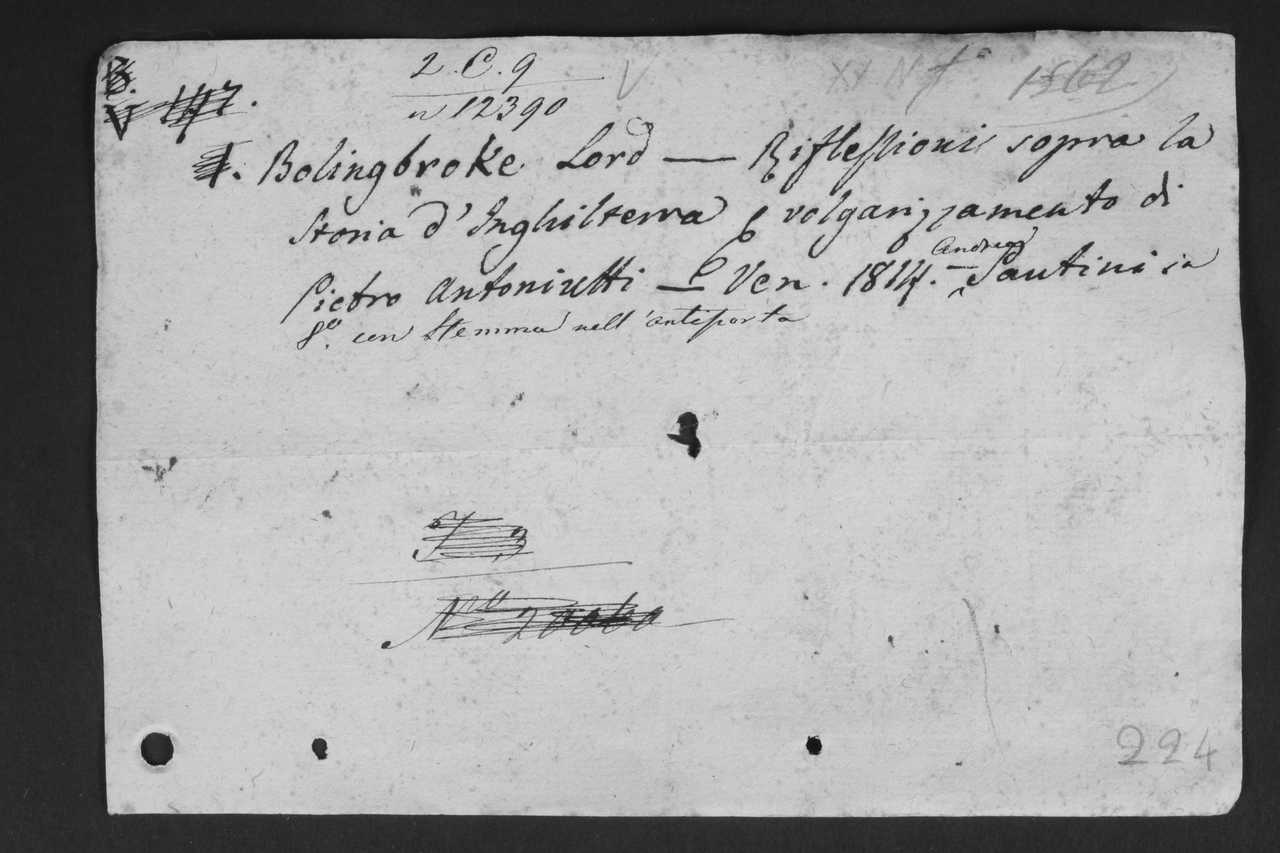 B.
V 147.
2. C. 9
n 12390
V
XX N
1862
1. Bolingbroke Lord — Riflessioni sopra la
Storia d'Inghilterra volgarizzamento di
Pietro Antoniutti — Ven. 1814. Andrea Santini in
8.º con Stemma nell'antiporta
Nº 20060
224